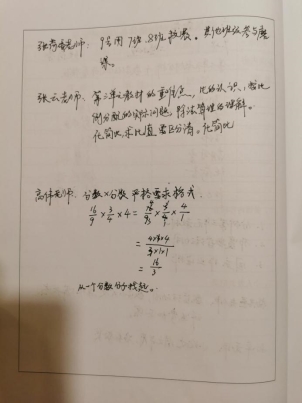 张 老师: 9日用 7班 8班 教案. 其他班级参与磨
课。
张云老师: 第三单元教材的重难点, 比的认识, 按比
例分配的实际问题, 除法算理的理解。
化简比, 求比值 要区分清。化简比
高 老师: 分数×分数 严格要求格式.
16/9 × 3/4 × 4 = 16/9 × 3/4 × 4/1
= 4×4×4/3×1×1
= 16/3
从一个分数分子找起。